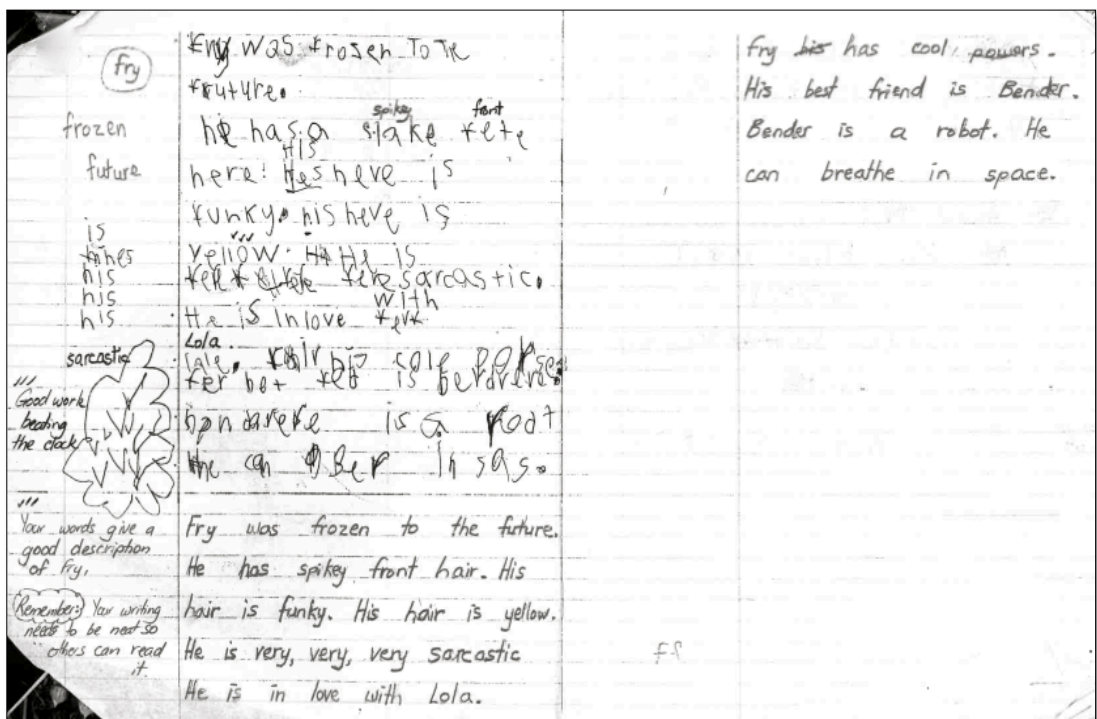 fry
frozen
future
is
his
his
his
sarcastic
Good work
beating
the clock
Your words give a
good description
of Fry.
Remember: Your writing
needs to be neat so
others can read
it.
Fry was frozen To Te
fruture.
spikey font
he has a slake fete
His
here! Hes heve is
funky. his heve is
yellow. He is
sarcastic.
with
He is in love
Lola.
lale.
is
is a root
He can in sas.
Fry was frozen to the future.
He has spikey front hair. His
hair is funky. His hair is yellow.
He is very, very, very sarcastic
He is in love with Lola.
Fry his has cool powers.
His best friend is Bender.
Bender is a robot. He
can breathe in space.